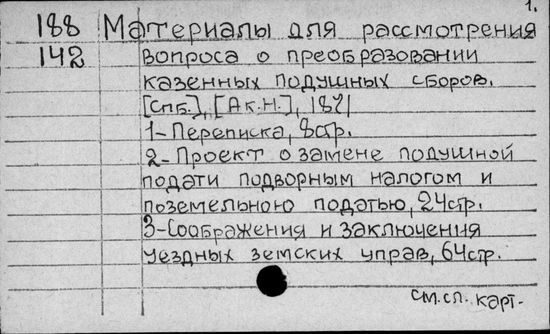 1.
188 Материалы для рассмотрения
142 вопроса о преобразовании
казенных подушных сборов.
[Спб.], [Ак.Н.], 1871
1-Переписка, 8стр.
2-Проект о замене подушной
подати подворным налогом и
поземельною податью, 24стр.
3-Соображения и заключения
уездных земских управ, 64стр.
см. сл. карт.